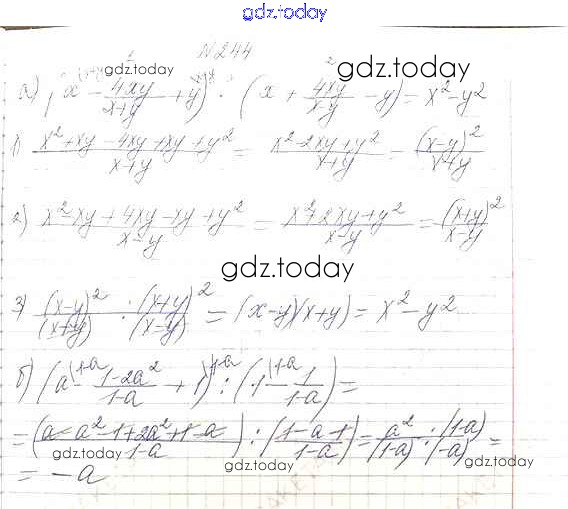 gdz.today
N 244
gdz.today gdz.today
а) (x - 4xy/(x+y) + y) : (x + 4xy/(x-y) - y) = x² - y²
1) (x² + xy - 4xy + xy + y²)/(x+y) = (x² - 2xy + y²)/(x+y) = (x-y)²/(x+y)
2) (x² - xy + 4xy - xy + y²)/(x-y) = (x² + 2xy + y²)/(x-y) = (x+y)²/(x-y)
gdz.today
3) (x-y)²/(x+y) : (x+y)²/(x-y) = (x-y)(x+y) = x² - y²
б) (a - (1-2a²)/(1-a) + 1) : (1 - 1/(1-a)) =
= ((a - a² - 1 + 2a² + 1 - a)/(1-a)) : ((1-a-1)/(1-a)) = a²·(1-a)/((1-a)·(-a)) =
gdz.today gdz.today
= -a